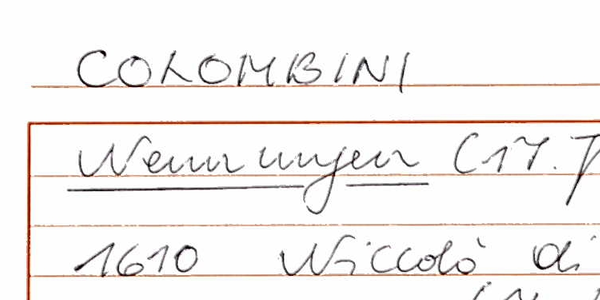 COLOMBINI
Nennungen (17. J
1610 Niccolò di